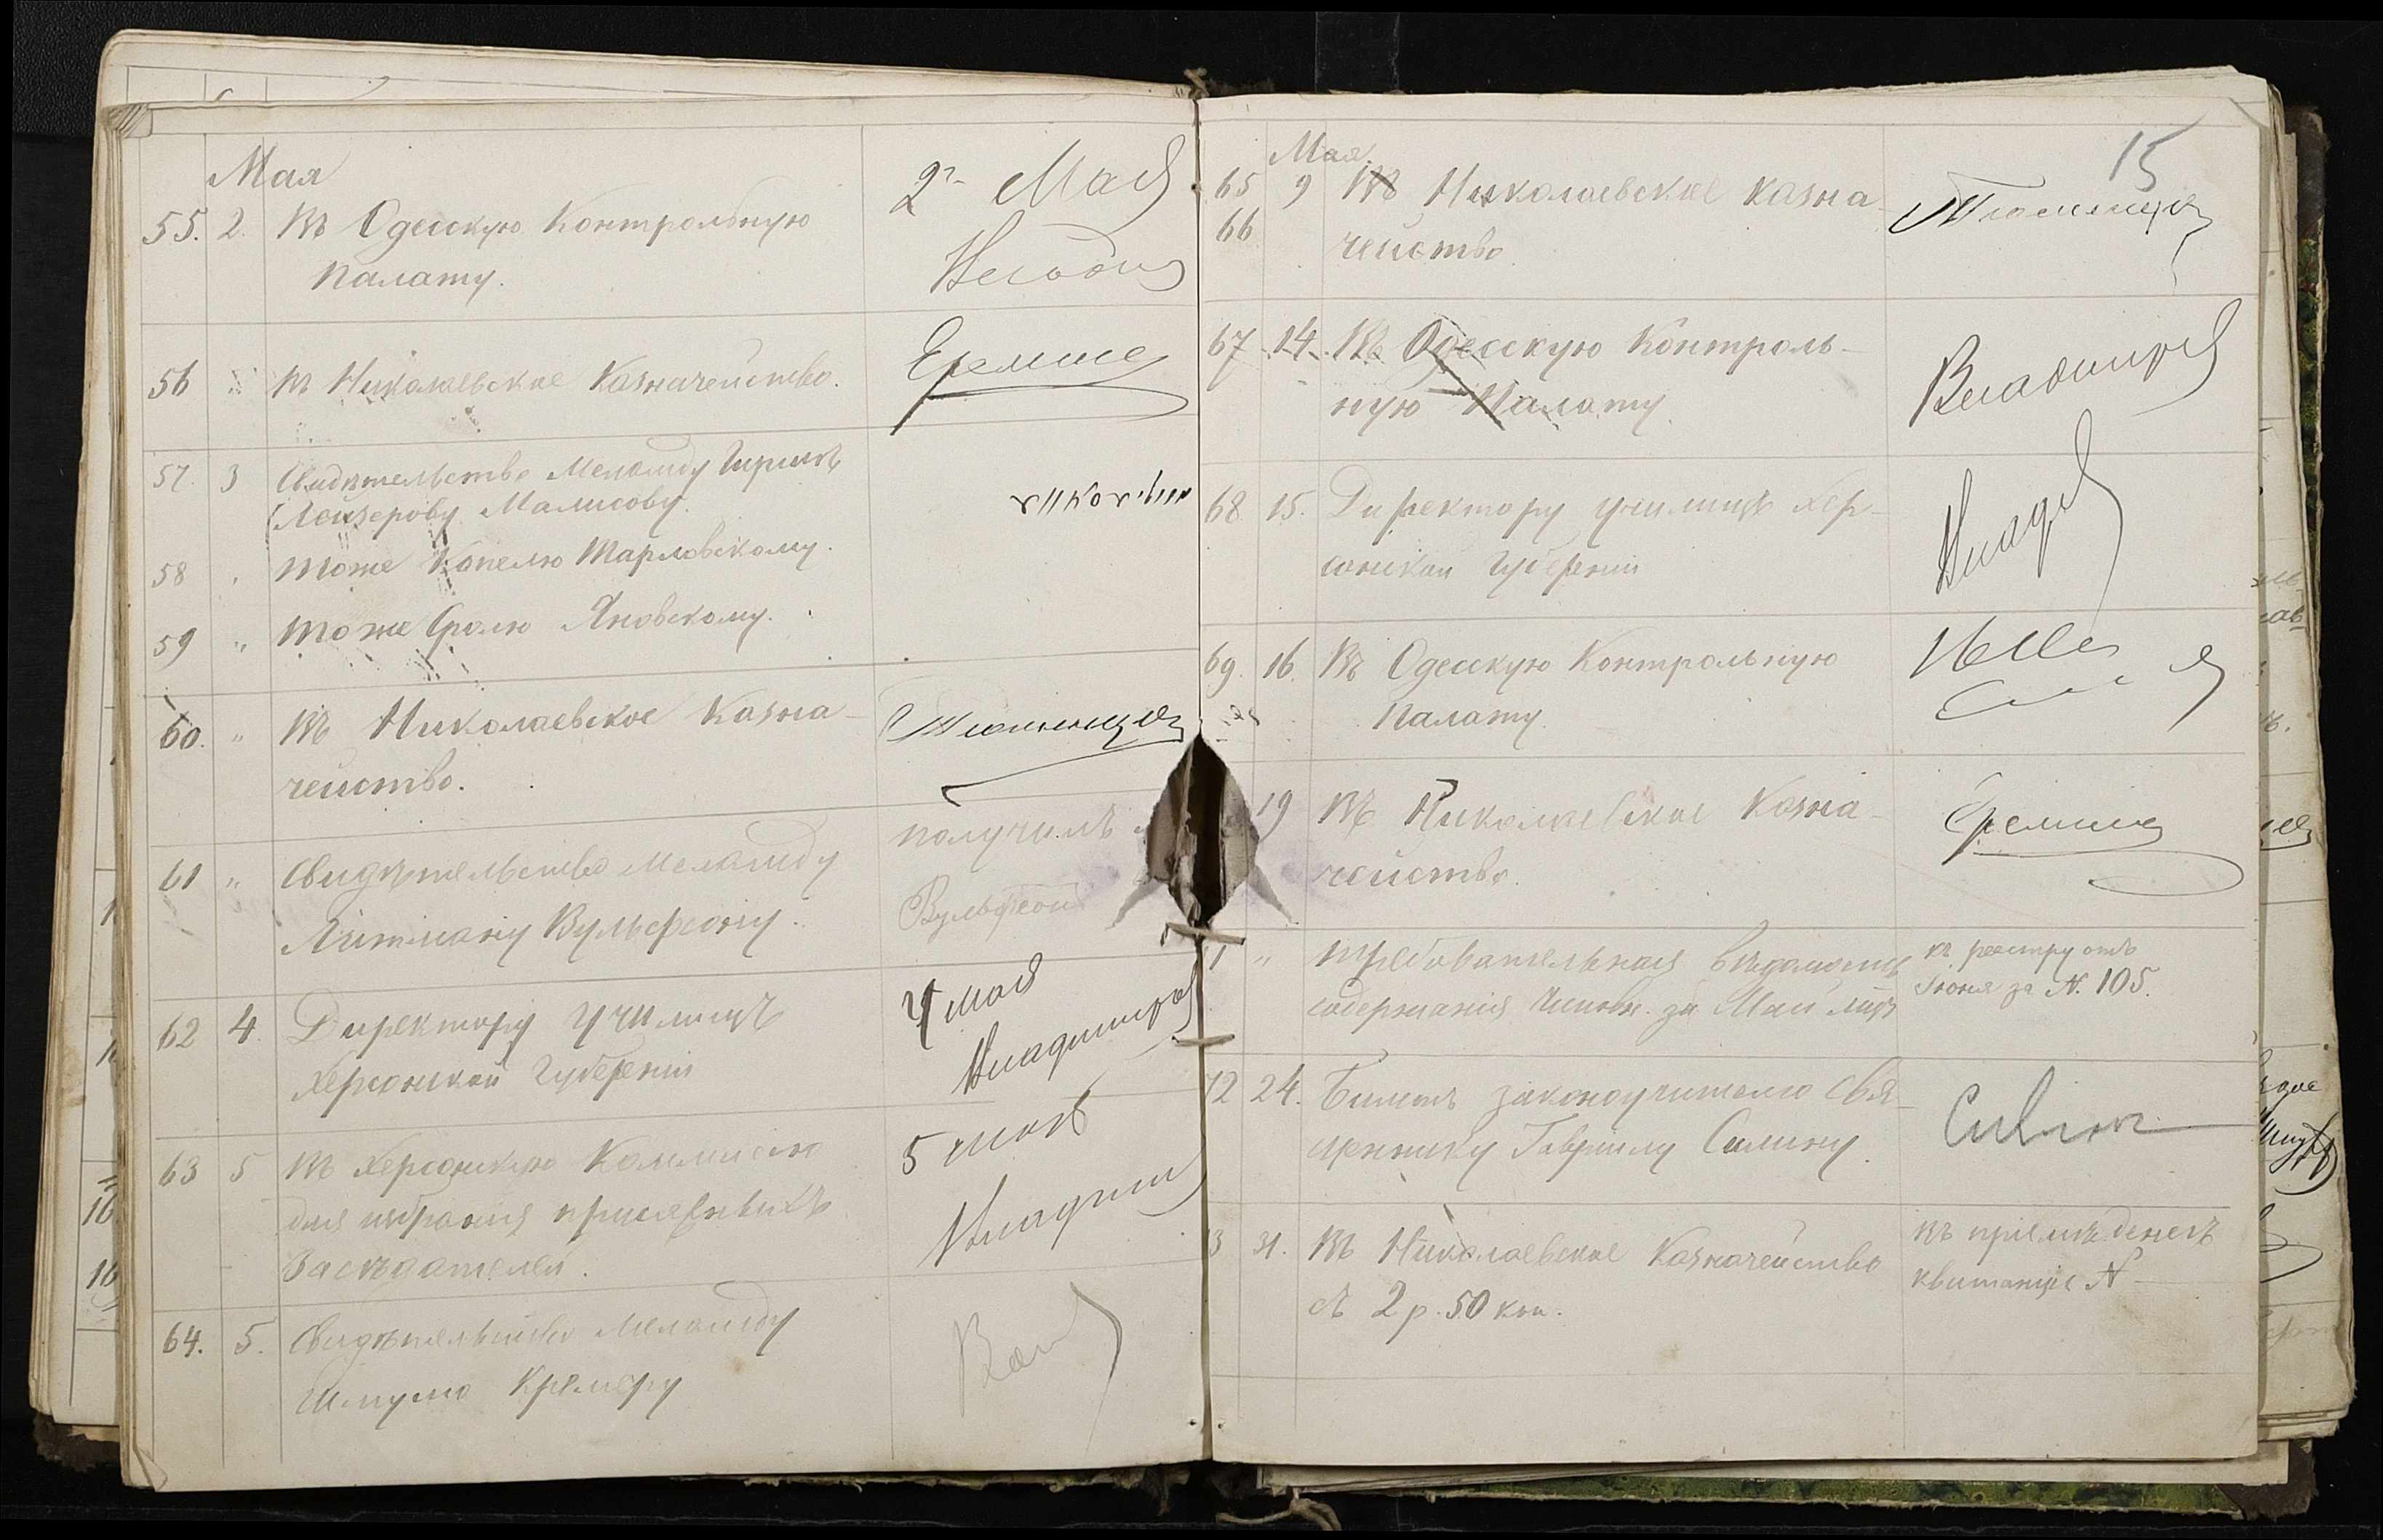 Мая
55. 2. Въ Одесскую Контрольную
Палату.
2го Мая
56 " въ Николаевское Казначейство.
57. 3 Свидѣтельство Меламду Гершкѣ
Лейзерову Малисову.
58 " тоже Копелю Шарловскому.
59 " тоже Сролю Яновскому.
60. " Въ Николаевское Казна-
чейство.
61 " Свидѣтельство Меламду
Литману Вульфсону.
получилъ
Вульфсон
62 4. Директору Училищъ
Херсонской Губерніи
4 мая
Владимиров
63 5 въ Херсонскую Коммисію
для избранія присяжныхъ
Засѣдателей.
5 мая
64. 5. Свидѣтельство Меламду
Шмулю Кремеру
15
Мая
65 9 Въ Николаевское Казна-
66 чейство
67 14. Въ Одесскую Контроль-
ную Палату
68 15. Директору училищъ Хер-
сонской Губерніи
69. 16. Въ Одесскую Контрольную
Палату
19 Въ Николаевское Казна-
чейство.
1 " требовательная вѣдомость
содержанія чиновн. за Май мѣц
къ реестру отъ
Іюня за N. 105.
72 24. Билетъ законоучителю Свя-
щеннику Гавріилу Силину.
3 31. Въ Николаевское Казначейство
съ 2 р. 50 коп.
въ пріемѣ денегъ
квитанція N —